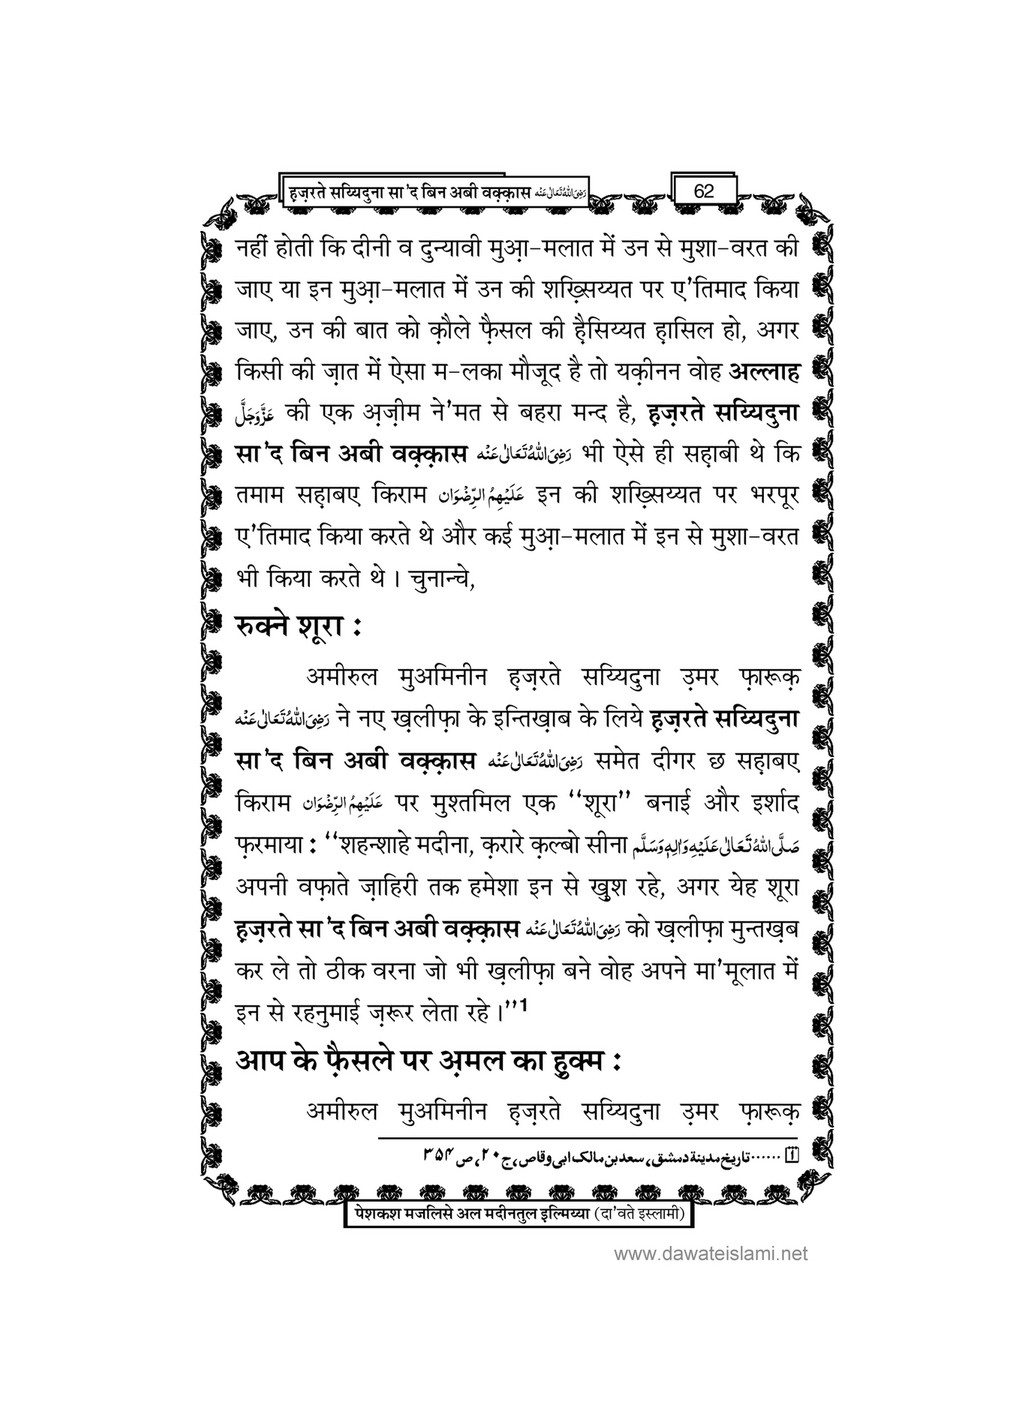 ह़ज़रते सय्यिदुना सा'द बिन अबी वक़्क़ास رَضِیَ اللهُ تَعَالٰی عَنْه
62
नहीं होती कि दीनी व दुन्यावी मुआ़-मलात में उन से मुशा-वरत की
जाए या इन मुआ़-मलात में उन की शख़्सिय्यत पर ए'तिमाद किया
जाए, उन की बात को क़ौले फ़ैसल की ह़ैसिय्यत ह़ासिल हो, अगर
किसी की ज़ात में ऐसा म-लका मौजूद है तो यक़ीनन वोह अल्लाह
عَزَّوَجَلَّ की एक अ़ज़ीम ने'मत से बहरा मन्द है, ह़ज़रते सय्यिदुना
सा'द बिन अबी वक़्क़ास رَضِیَ اللهُ تَعَالٰی عَنْه भी ऐसे ही सह़ाबी थे कि
तमाम सह़ाबए किराम عَلَيْهِمُ الرِّضْوَان इन की शख़्सिय्यत पर भरपूर
ए'तिमाद किया करते थे और कई मुआ़-मलात में इन से मुशा-वरत
भी किया करते थे । चुनान्चे,
रुक्ने शूरा :
अमीरुल मुअमिनीन ह़ज़रते सय्यिदुना उ़मर फ़ारूक़
رَضِیَ اللهُ تَعَالٰی عَنْه ने नए ख़लीफ़ा के इन्तिख़ाब के लिये ह़ज़रते सय्यिदुना
सा'द बिन अबी वक़्क़ास رَضِیَ اللهُ تَعَالٰی عَنْه समेत दीगर छ सह़ाबए
किराम عَلَيْهِمُ الرِّضْوَان पर मुश्तमिल एक “शूरा” बनाई और इर्शाद
फ़रमाया : “शहन्शाहे मदीना, क़रारे क़ल्बो सीना صَلَّی اللهُ تَعَالٰی عَلَيْهِ وَاٰلِهٖ وَسَلَّم
अपनी वफ़ाते ज़ाहिरी तक हमेशा इन से ख़ुश रहे, अगर येह शूरा
ह़ज़रते सा'द बिन अबी वक़्क़ास رَضِیَ اللهُ تَعَالٰی عَنْه को ख़लीफ़ा मुन्तख़ब
कर ले तो ठीक वरना जो भी ख़लीफ़ा बने वोह अपने मा'मूलात में
इन से रहनुमाई ज़रूर लेता रहे ।”1
आप के फ़ैसले पर अ़मल का हुक्म :
अमीरुल मुअमिनीन ह़ज़रते सय्यिदुना उ़मर फ़ारूक़
1 ......تاریخ مدینة دمشق، سعد بن مالک ابی وقاص، ج ۲۰، ص ۳۵۴
पेशकश मजलिसे अल मदीनतुल इल्मिय्या (दा'वते इस्लामी)
www.dawateislami.net